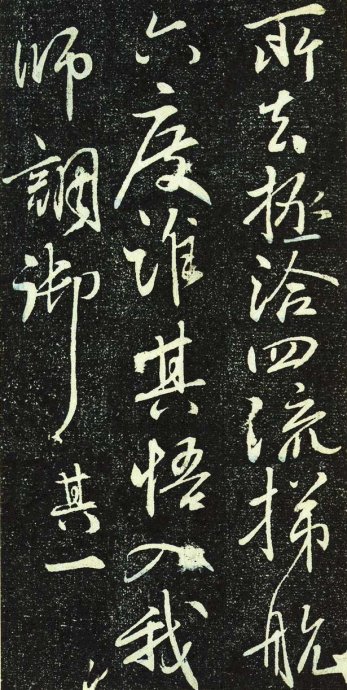 所去拯洽四流梯航
六度誰其悟入我
師調御其一